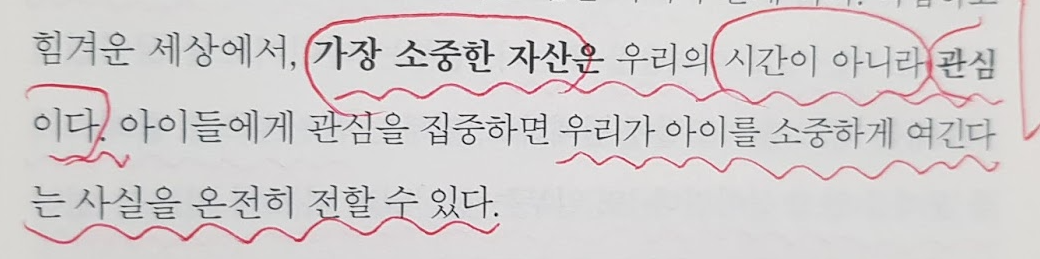 힘겨운 세상에서, 가장 소중한 자산은 우리의 시간이 아니라 관심
이다. 아이들에게 관심을 집중하면 우리가 아이를 소중하게 여긴다
는 사실을 온전히 전할 수 있다.